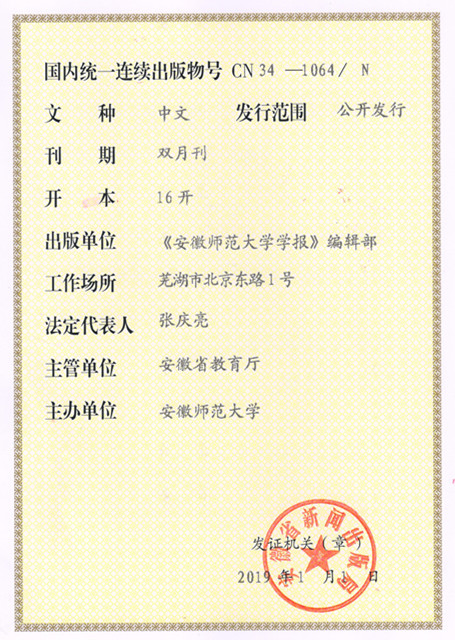 国内统一连续出版物号 CN 34 —1064/ N
文 种 中文 发行范围 公开发行
刊 期 双月刊
开 本 16开
出版单位 《安徽师范大学学报》编辑部
工作场所 芜湖市北京东路1号
法定代表人 张庆亮
主管单位 安徽省教育厅
主办单位 安徽师范大学
安徽省新闻出版局
发证机关（章）
2019 年 1 月 1 日